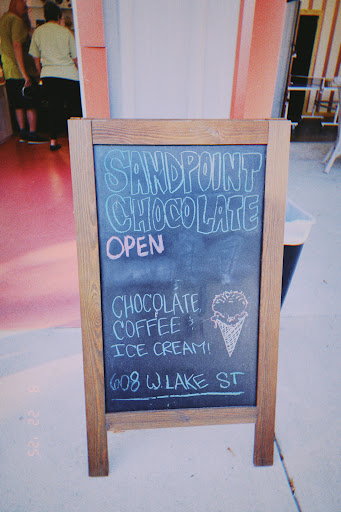 SANDPOINT
CHOCOLATE
OPEN
CHOCOLATE,
COFFEE &
ICE CREAM!
608 W. LAKE ST
8 22 '25